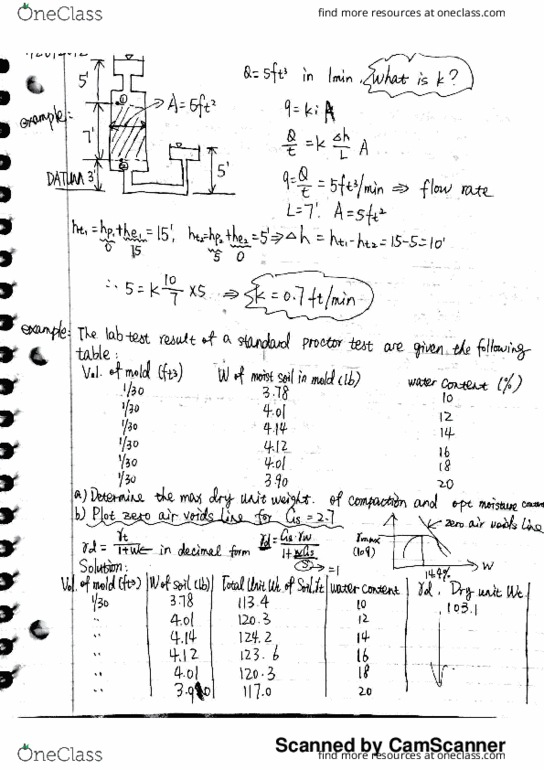 OneClass
find more resources at oneclass.com
5'
Q = 5ft³ in 1min. What is k?
A = 5ft²
example:
7'
5'
DATUM 3'
q = k i A
Q/t = k Δh/L A
q = Q/t = 5ft³/min ⇒ flow rate
L = 7'. A = 5ft²
ht1 = hp1 + he1 = 15', ht2 = hp2 + he2 = 5' ⇒ Δh = ht1 - ht2 = 15 - 5 = 10'
0 15 5 0
∴ 5 = k 10/7 × 5 ⇒ k = 0.7 ft/min
example: The lab test result of a standard proctor test are given the following
table:
Vol. of mold (ft3) W of moist soil in mold (lb) water content (%)
1/30 3.78 10
1/30 4.01 12
1/30 4.14 14
1/30 4.12 16
1/30 4.01 18
1/30 3.90 20
a) Determine the max dry unit weight. of compaction and opt moisture content
b) Plot zero air voids line for Gs = 2.7
zero air voids line
γd = γt/1+w in decimal form γd = Gs·γw/1+wGs/S
=1
γmax
(109)
W
14.4%
Solution:
Vol. of mold (ft3) W of soil (lb) Total Unit Wt of Soil, γt water content γd, Dry unit Wt
1/30 3.78 113.4 10 103.1
" 4.01 120.3 12
" 4.14 124.2 14
" 4.12 123.6 16
" 4.01 120.3 18
" 3.90 117.0 20
Scanned by CamScanner
OneClass
find more resources at oneclass.com